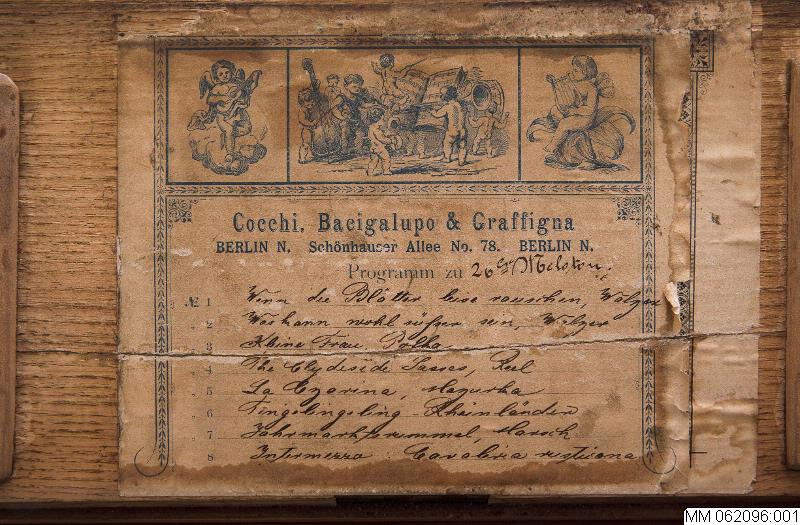 Cocchi, Bacigalupo & Graffigna
BERLIN N. Schönhauser Allee No. 78. BERLIN N.
Programm zu 26er
№ 1 Wenn die Blätter leise rauschen, Walzer
2 Was kann wohl süßer sein, Walzer
3 Kleine Frau Polka
4 The Clydeside Lasses, Reel
5 La Czarina, Mazurka
6 Tingelingeling - Rheinländer
7 Jahrmarktsrummel, Marsch
8 Intermezzo Cavaleria rusticana
MM 062096:001